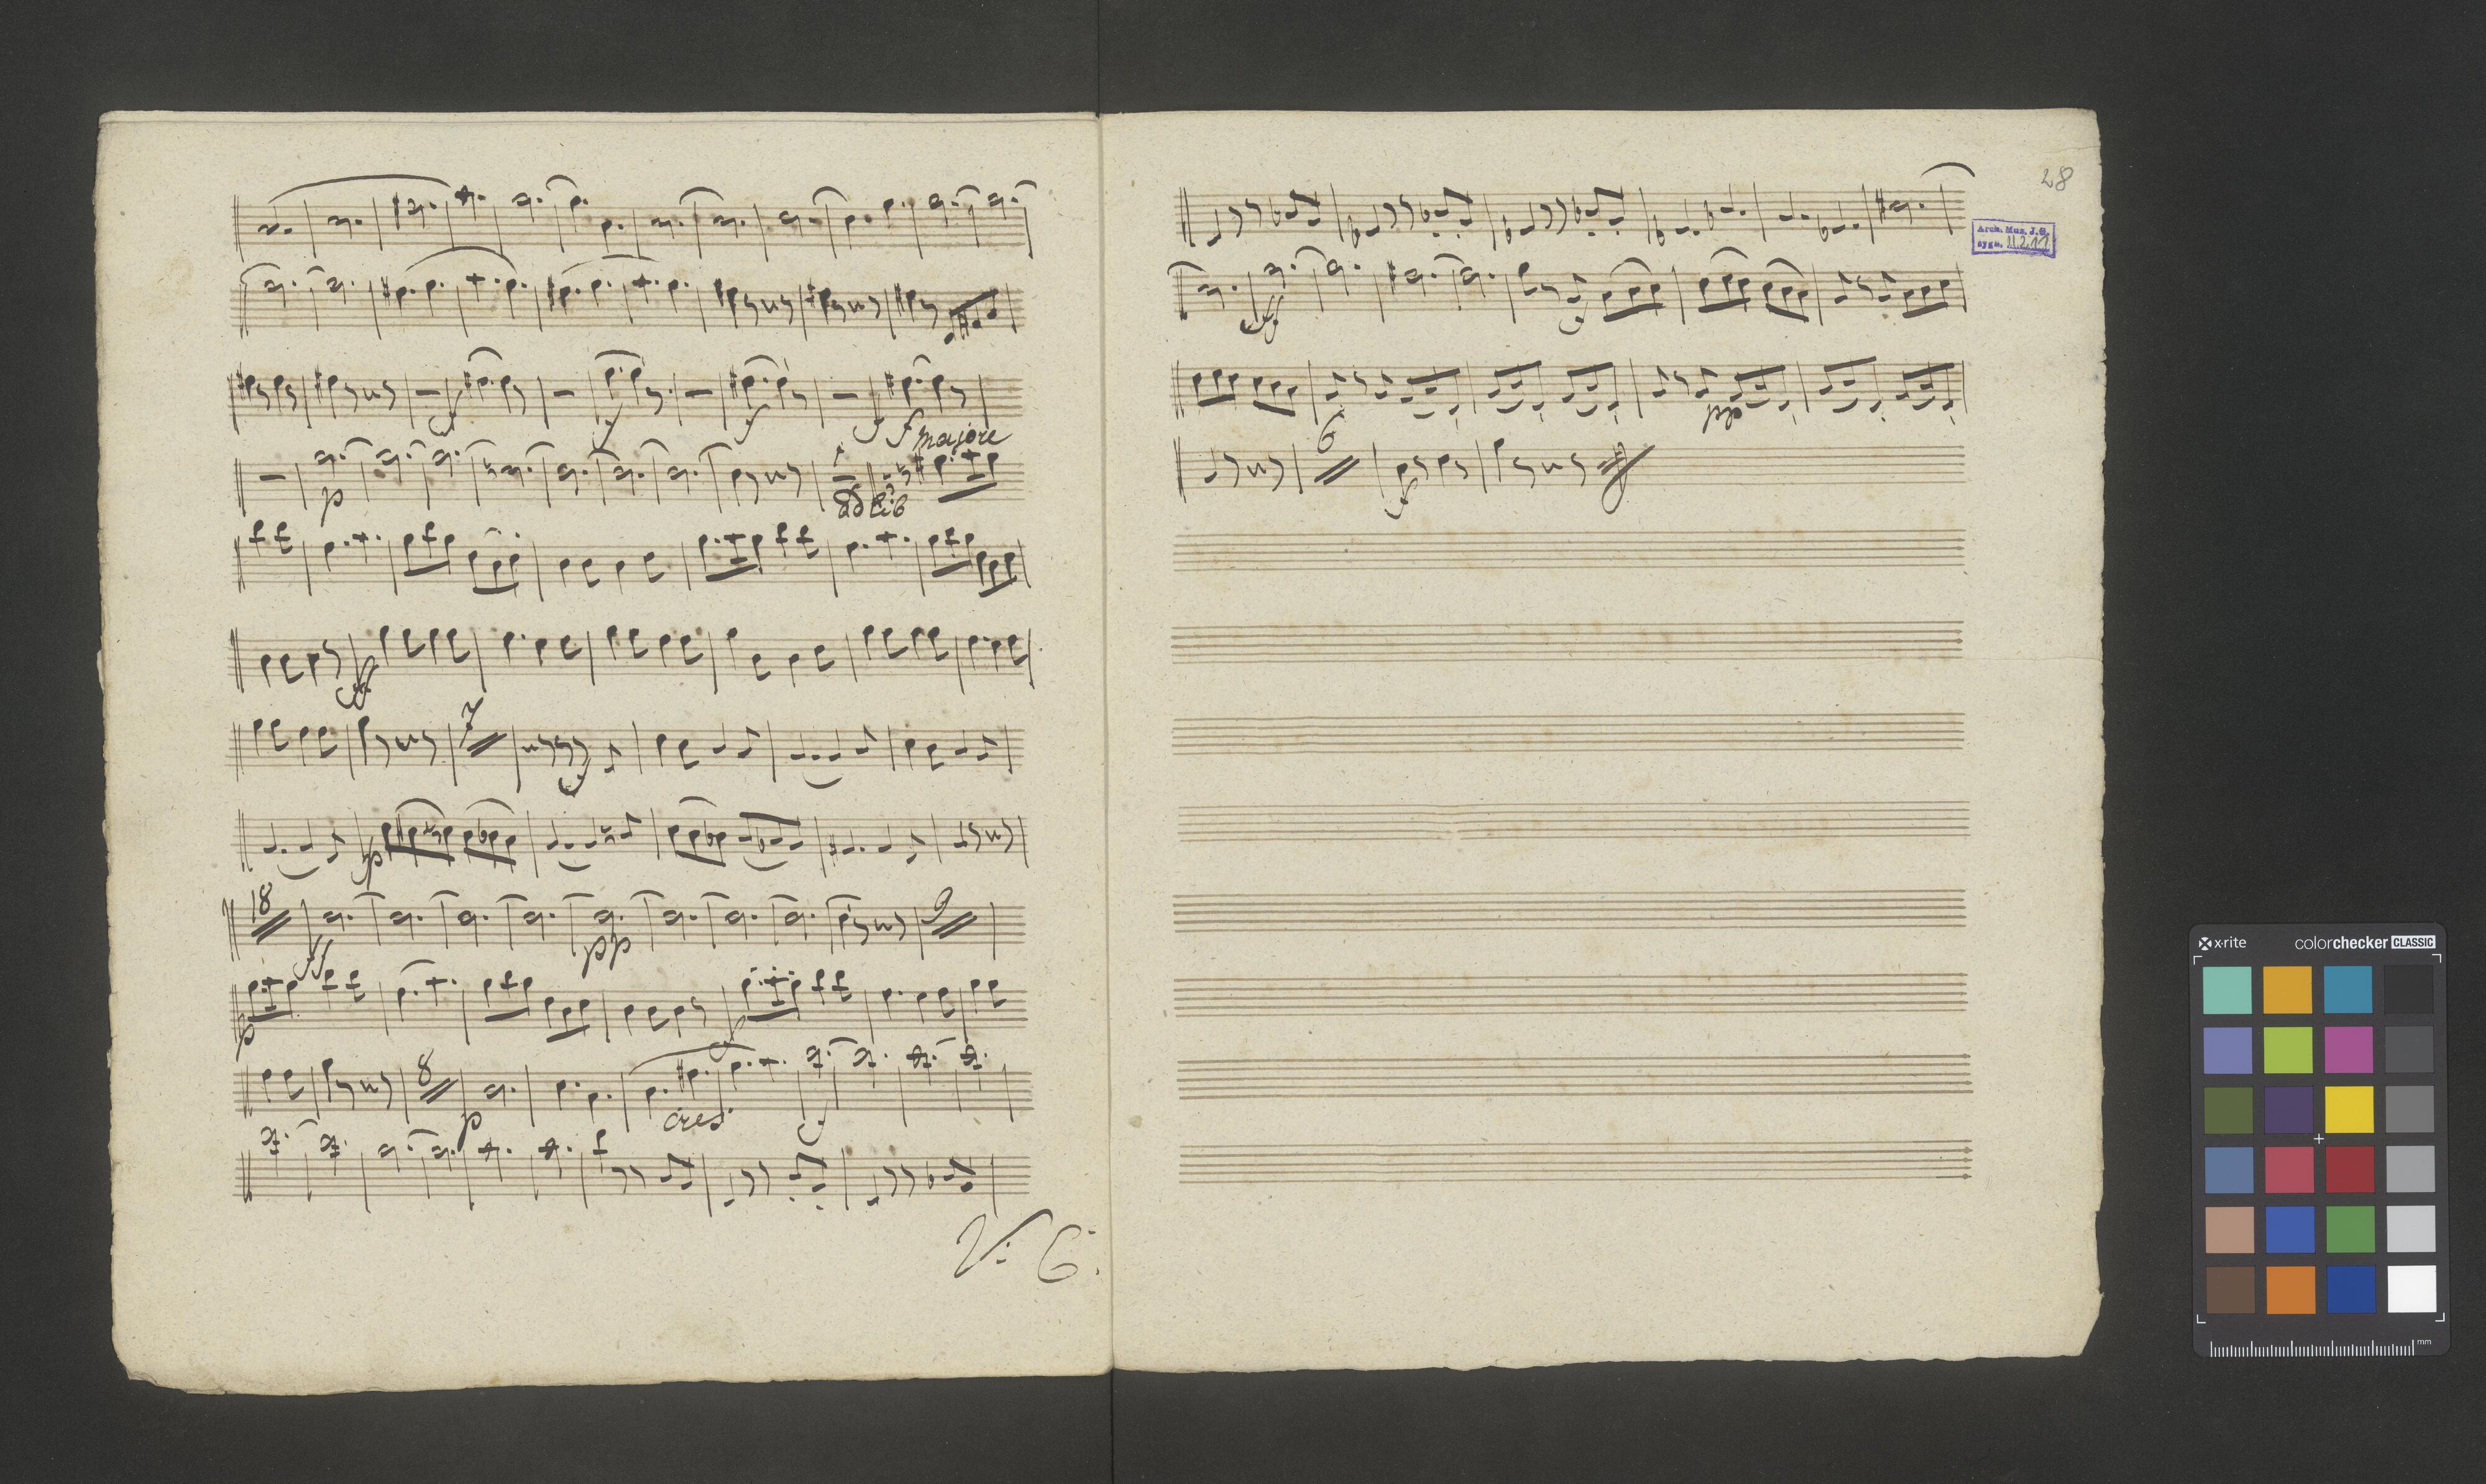 f f f f f
majore
p ad lib
ff
7
f
fp
18
ff pp 9
p f
8 p cres f
V: S:
28
Arch. Muz. J. G.
sygn. II.2.11
ff f
6
f
x·rite colorchecker CLASSIC
mm